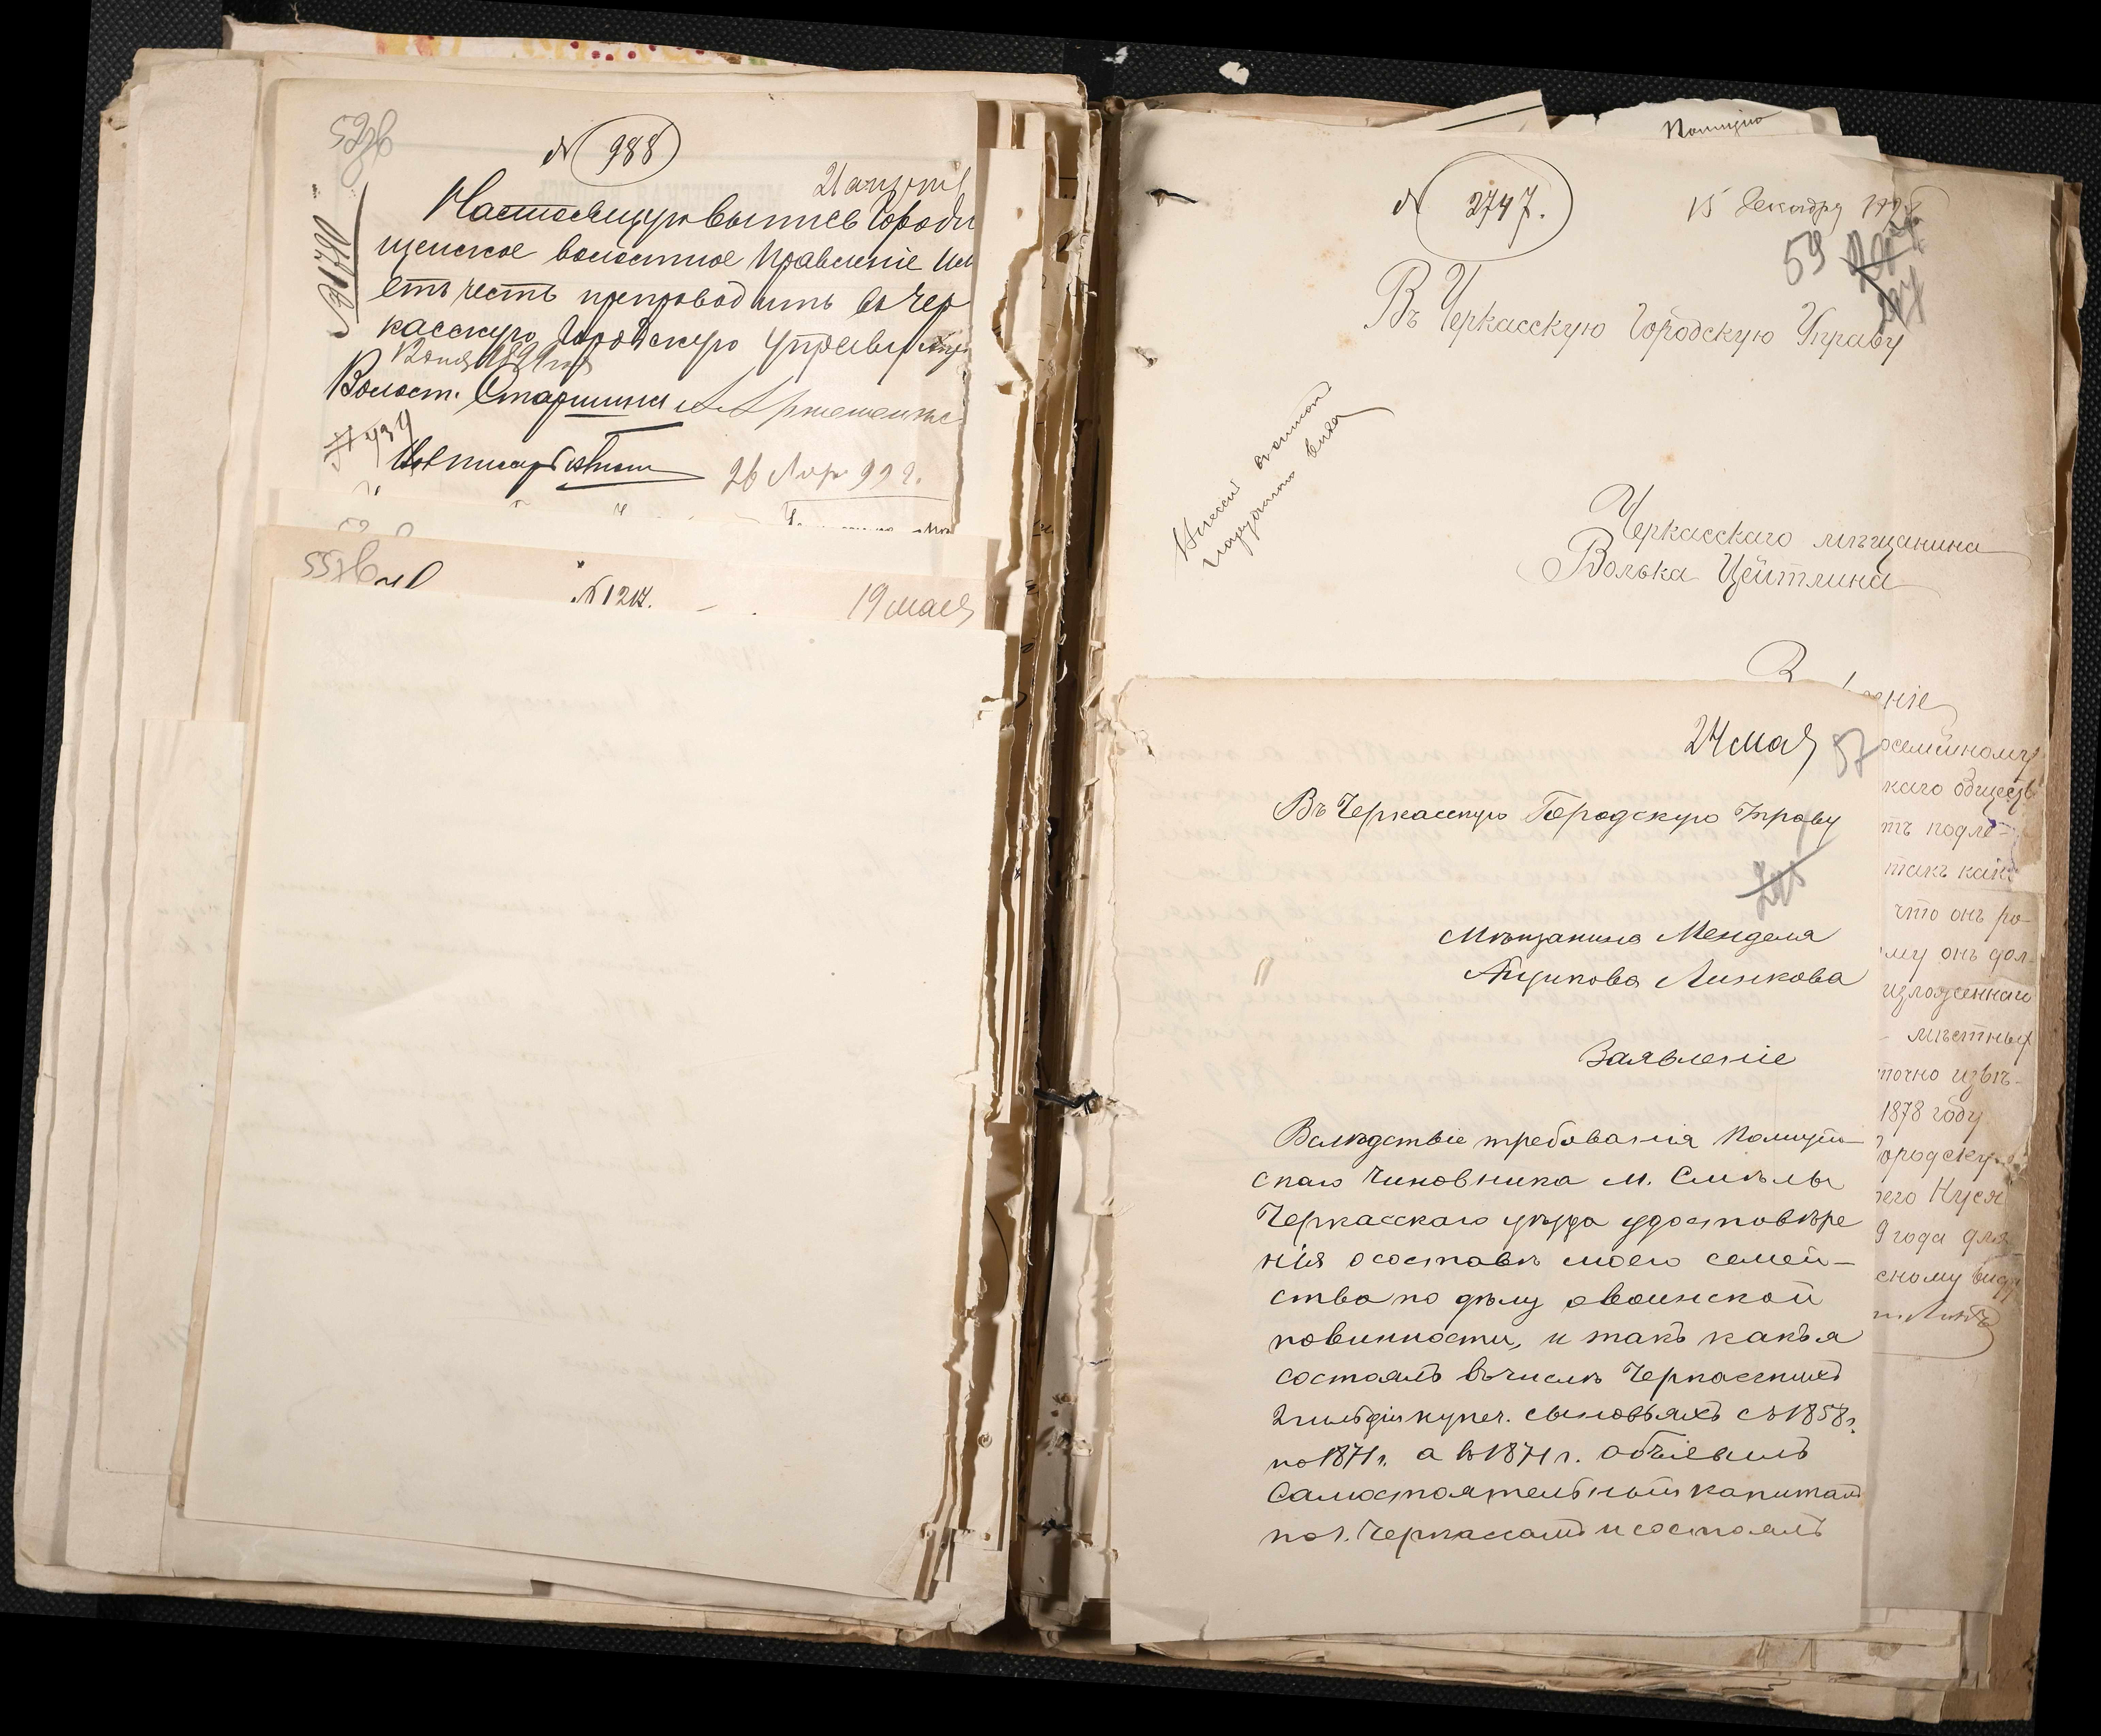 52зв
N 988
21 апрѣл
N 1780
Настоящую выпись Городи
щенское волостное правленіе им
етъ честь препроводить въ Чер
касскую городскую управу
Волост. Старшина
26 Апр 99 г.
55зв
N 1217.
19 мая
Полицію
N 2747.
15 Декабря
59
Въ Черкасскую Городскую Управу
Черкасскаго мѣщанина
Волька Цейтлина
ніе
осемейному
каго обществ
тъ подле-
такъ какъ
что онъ ро-
му онъ дол-
изложеннаго
мѣстных
точно извѣ-
1878 году
ородску
его Нуся
9 года для
сному виду
24 мая
57
Въ Черкасскую Городскую Управу
Мѣщанина Менделя
Ициковa Линкова
Заявленіе
Вслѣдствіе требованія Полицей
скаго Чиновника м. Смѣлы
Черкасскаго уѣзда удостовѣре
нія о составѣ моего семей-
ства по дѣлу о воинской
повинности, и такъ какъ я
состоялъ въ числѣ Черкасскихъ
2 гильдіи купеч. сыновьяхъ съ 1858 г.
по 1871 г. а въ 1871 г. объявилъ
Самостоятельный капиталъ
по г. Черкассамъ и состоялъ